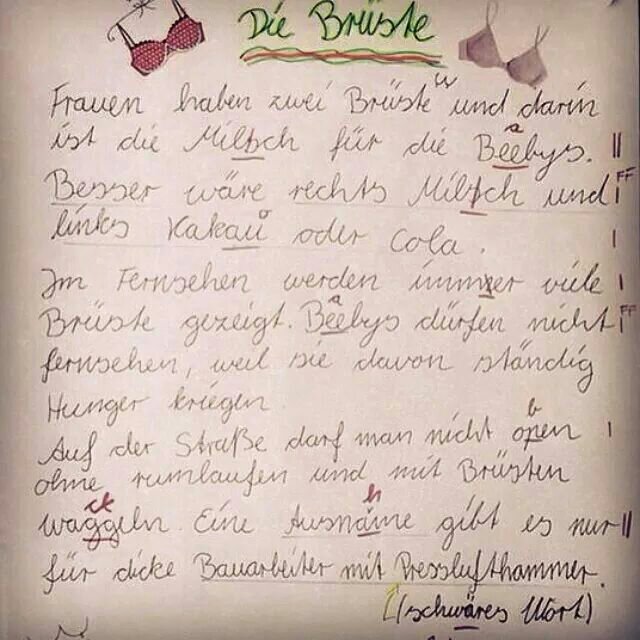 Die Brüste
Frauen haben zwei Brüste und darin
ist die Miltsch für die Beebys. ||
Besser wäre rechts Miltsch und |FF
links Kakau oder Cola. |
Im Fernsehen werden immer viele |
Brüste gezeigt. Beebys dürfen nicht |FF
fernsehen, weil sie davon ständig
Hunger kriegen.
Auf der Straße darf man nicht open |
ohne rumlaufen und mit Brüsten
waggeln. Eine Ausnáme gibt es nur ||
für dicke Bauarbeiter mit Presslufthammer.
(schwäres Wort)